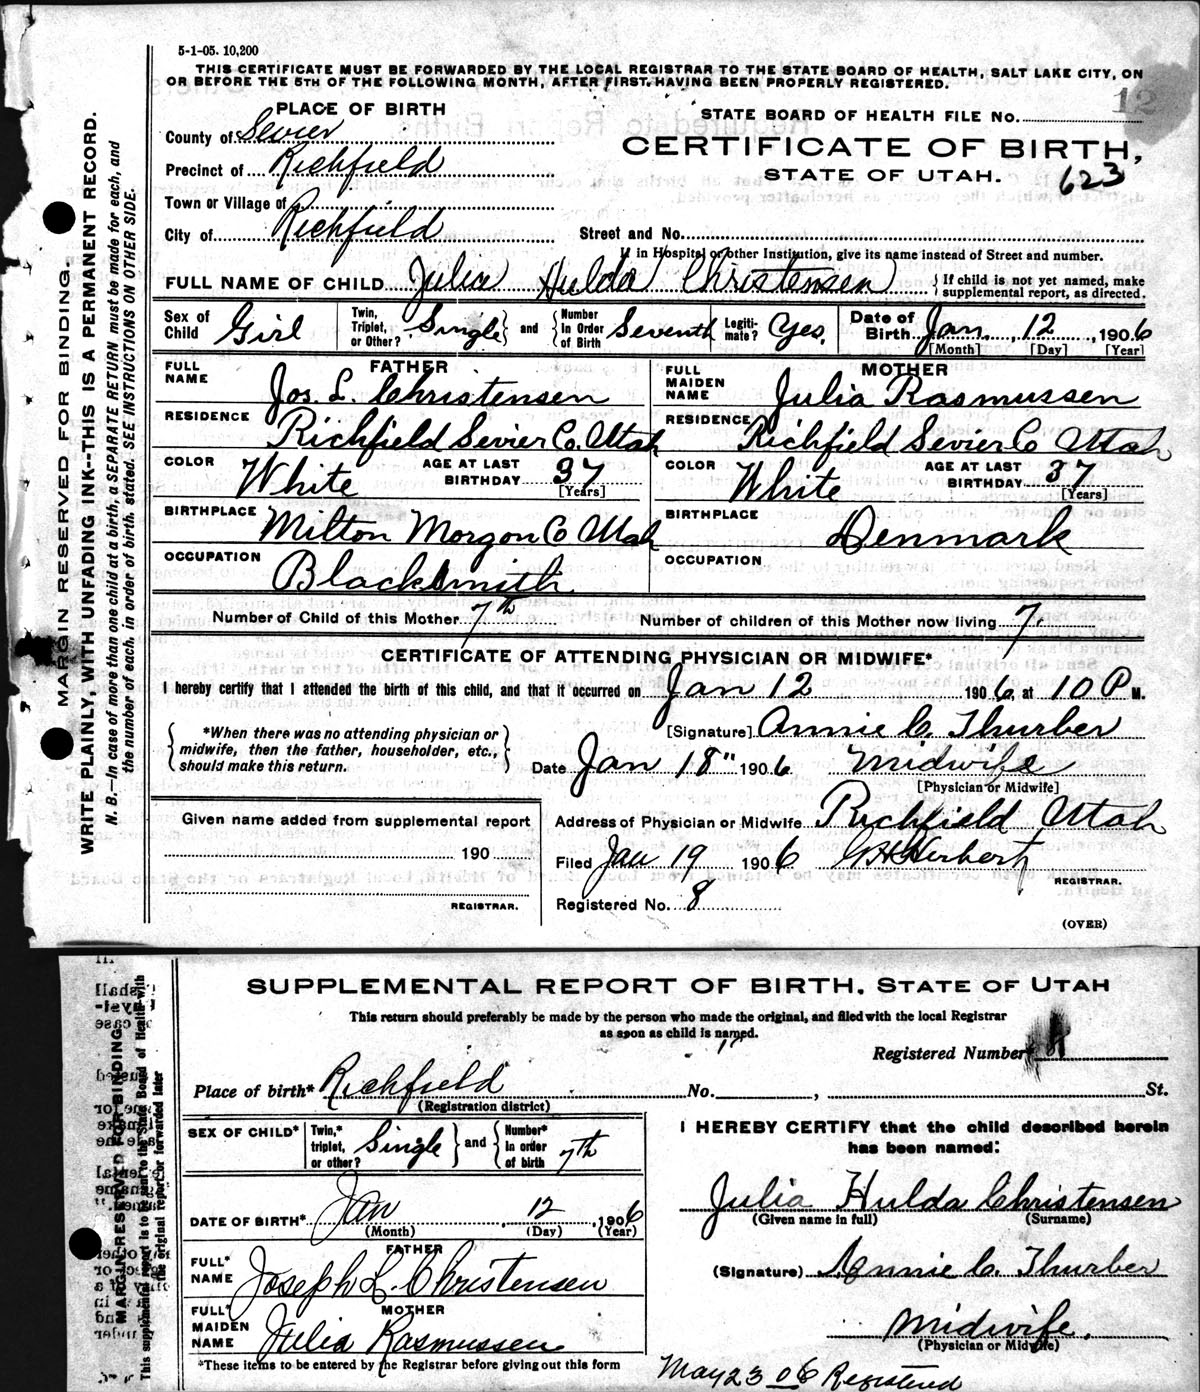 5-1-05. 10,200
THIS CERTIFICATE MUST BE FORWARDED BY THE LOCAL REGISTRAR TO THE STATE BOARD OF HEALTH, SALT LAKE CITY, ON
OR BEFORE THE 5TH OF THE FOLLOWING MONTH, AFTER FIRST HAVING BEEN PROPERLY REGISTERED.
12
PLACE OF BIRTH
STATE BOARD OF HEALTH FILE No.
County of Sevier
CERTIFICATE OF BIRTH,
Precinct of Richfield
STATE OF UTAH. 623
Town or Village of
City of Richfield
Street and No.
If in Hospital or other Institution, give its name instead of Street and number.
FULL NAME OF CHILD Julia Hulda Christensen { If child is not yet named, make supplemental report, as directed.
Sex of Child Girl Twin, Triplet, or Other? Single } and { Number In Order of Birth Seventh Legiti- mate? Yes, Date of Birth Jan. 12, 1906
[Month] [Day] [Year]
FATHER
FULL NAME Jos. L. Christensen
RESIDENCE Richfield Sevier Co. Utah
COLOR White AGE AT LAST BIRTHDAY 37
[Years]
BIRTHPLACE Milton Morgon Co Utah
OCCUPATION Blacksmith
MOTHER
FULL MAIDEN NAME Julia Rasmussen
RESIDENCE Richfield Sevier Co Utah
COLOR White AGE AT LAST BIRTHDAY 37
[Years]
BIRTHPLACE Denmark
OCCUPATION
Number of Child of this Mother 7th Number of children of this Mother now living 7.
CERTIFICATE OF ATTENDING PHYSICIAN OR MIDWIFE*
I hereby certify that I attended the birth of this child, and that it occurred on Jan 12 1906, at 10 P M.
*When there was no attending physician or
midwife, then the father, householder, etc.,
should make this return.
[Signature] Annie C. Thurber
Date Jan 18" 1906 Midwife
[Physician or Midwife]
Given name added from supplemental report
190
REGISTRAR.
Address of Physician or Midwife Richfield Utah
Filed Jan 19 1906 G H Herbert
REGISTRAR.
Registered No. 8
(OVER)
MARGIN RESERVED FOR BINDING.
WRITE PLAINLY, WITH UNFADING INK--THIS IS A PERMANENT RECORD.
N. B.—In case of more than one child at a birth, a SEPARATE RETURN must be made for each, and
the number of each, in order of birth, stated. SEE INSTRUCTIONS ON OTHER SIDE.
SUPPLEMENTAL REPORT OF BIRTH, STATE OF UTAH
This return should preferably be made by the person who made the original, and filed with the local Registrar
as soon as child is named.
Registered Number*
Place of birth* Richfield No. , St.
(Registration district)
SEX OF CHILD* Twin,* triplet, or other? Single } and { Number* in order of birth 7th
DATE OF BIRTH* Jan 12, 1906
(Month) (Day) (Year)
FATHER
FULL* NAME Joseph L. Christensen
MOTHER
FULL* MAIDEN NAME Julia Rasmussen
*These items to be entered by the Registrar before giving out this form
I HEREBY CERTIFY that the child described herein
has been named:
Julia Hulda Christensen
(Given name in full) (Surname)
(Signature) Annie C. Thurber
Midwife.
(Physician or Midwife)
May 23 06 Registered
MARGIN RESERVED FOR BINDING
This supplemental report is to be sent to the State Board of Health with
the original report or forwarded later